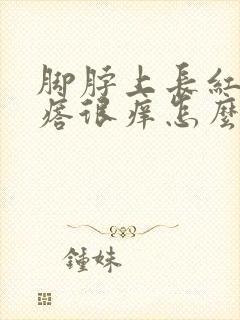 脚脖上長紅
疙很痒怎麼
鍾妹